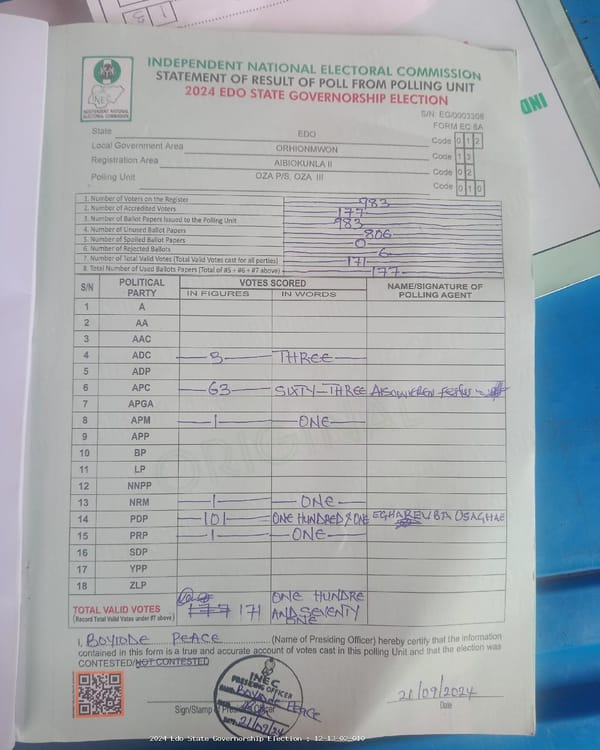 INDEPENDENT NATIONAL ELECTORAL COMMISSION
STATEMENT OF RESULT OF POLL FROM POLLING UNIT
2024 EDO STATE GOVERNORSHIP ELECTION
INEC
INDEPENDENT NATIONAL ELECTORAL COMMISSION
S/N: EG/0003308
FORM EC 8A
State EDO Code 0 1 2
Local Government Area ORHIONMWON Code 1 3
Registration Area AIBIOKUNLA II Code 0 2
Polling Unit OZA P/S, OZA III Code 0 1 0
1. Number of Voters on the Register 983
2. Number of Accredited Voters 177
3. Number of Ballot Papers Issued to the Polling Unit 983
4. Number of Unused Ballot Papers 806
5. Number of Spoiled Ballot Papers 0
6. Number of Rejected Ballots 6
7. Number of Total Valid Votes (Total Valid Votes cast for all parties) 171
8. Total Number of Used Ballots Papers (Total of #5 + #6 + #7 above) 177
S/N POLITICAL PARTY VOTES SCORED NAME/SIGNATURE OF POLLING AGENT
IN FIGURES IN WORDS
1 A
2 AA
3 AAC
4 ADC 3 THREE
5 ADP
6 APC 63 SIXTY-THREE
7 APGA
8 APM 1 ONE
9 APP
10 BP
11 LP
12 NNPP
13 NRM 1 ONE
14 PDP 101 ONE HUNDRED & ONE EGHAREUBA OSAGHAE
15 PRP 1 ONE
16 SDP
17 YPP
18 ZLP
TOTAL VALID VOTES 177 171 ONE HUNDRE AND SEVENTY ONE
(Record Total Valid Votes under #7 above)
ORIGINAL
I, BOYIODE PEACE (Name of Presiding Officer) hereby certify that the information
contained in this form is a true and accurate account of votes cast in this polling Unit and that the election was
CONTESTED/NOT CONTESTED
INEC
PRESIDING OFFICER
PEACE
DATE: 21/09/24
Sign/Stamp of Presiding Officer
21/09/2024
Date
2024 Edo State Governorship Election : 12-13-02-010
IND